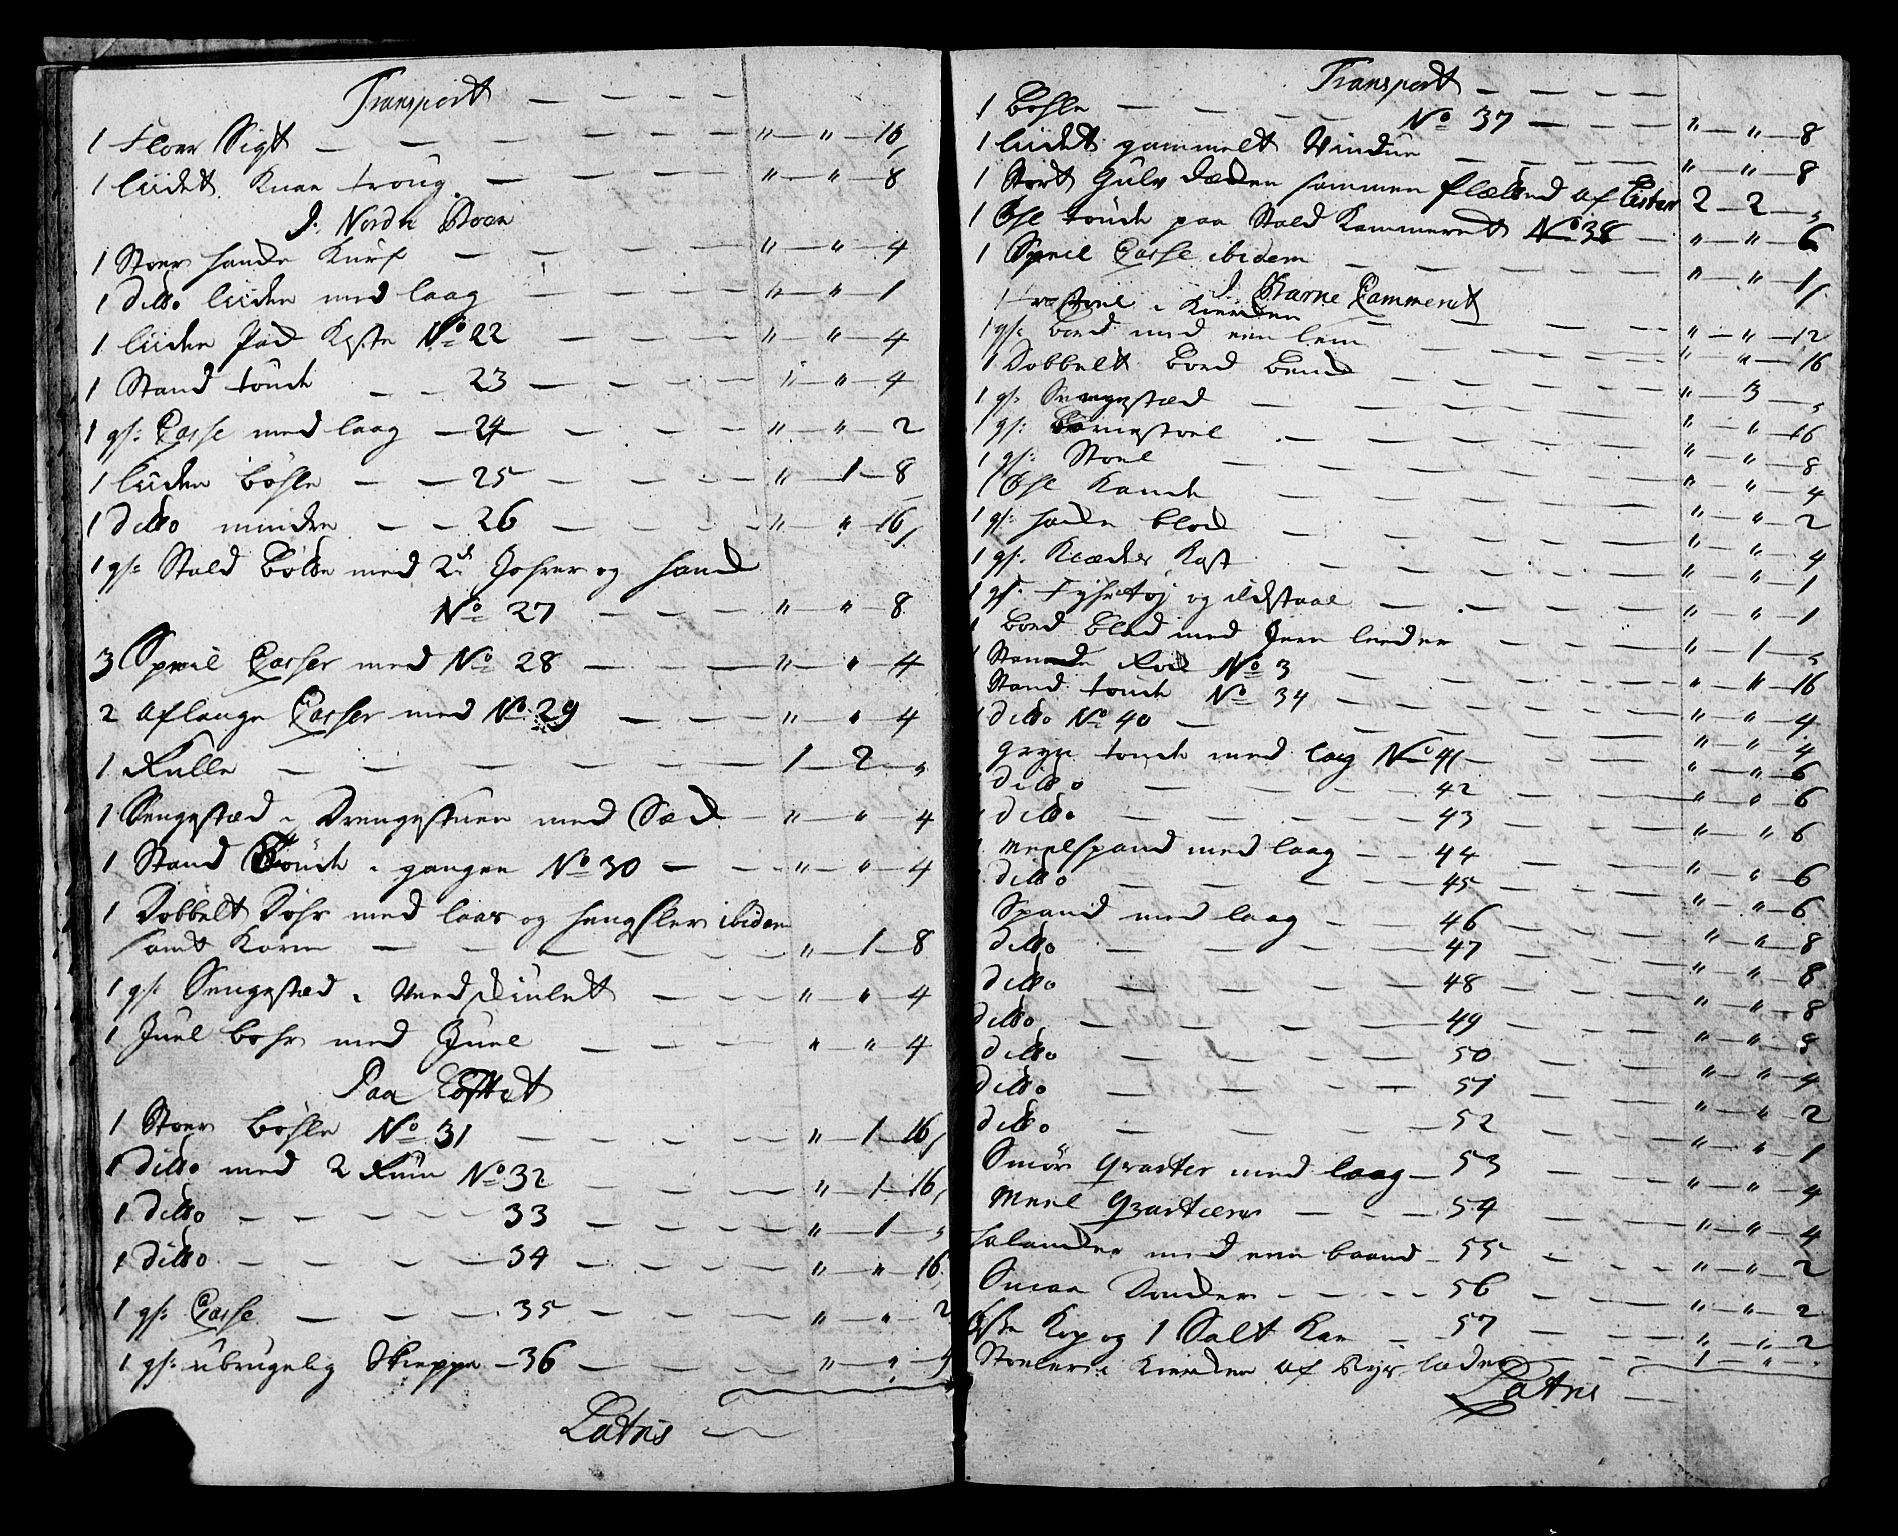 Transport
1 Floer Sigt " — " — 16
1 liidet Knae troug " — " — 8
J. Nordre Boen
1 Stoer haande Kurf " — " — 4
1 Ditto liiden med laag " — " — 1
1 liiden Kaste No 22 " — " — 4
1 Stand tønde 23 " — " — 4
1 gl: Casse med laag 24 " — " — 2
1 liiden bøhle 25 " — 1 — 8
1 Ditto mindre 26 " — " — 16
1 gl: Stald bøtte med 2de og haand
No 27 " — " — 8
3 Casser med No 28 " — " — 4
2 aflange Casser med No 29 " — " — 4
1 Rulle 1 — 2 — "
1 Sengestæd i Drengestuen med " — " — 4
1 Stand Tønde i gangen No 30 " — " — 4
1 Dobbelt Døhr med laas og hengsler ibidem
samt Karm " — 1 — 8
1 gl: Sengestæd i Vedskiulet " — " — 4
1 Juel bohr med Juel " — " — 4
Paa Loftet
1 Stoer bøhle No 31 " — 1 — 16
1 Ditto med 2 Rum No 32 " — 1 — 16
1 Ditto 33 " — 1 — "
1 Ditto 34 " — " — 16
1 gl: Casse 35 " — " — 2
1 gl: ubrugelig Skieppe 36 " — "
Latus
Transport
1 bøhle No 37 " — " — 8
1 liidet gammelt Vindue " — " — 8
1 Stort Gulv sammen af 2 — 2 — "
1 Øhl tønde paa Stald Kammeret No 38 " — " — 6
1 Casse ibidem " — " — 1
J. Barne Cammeret
1 i Kierden " — " — 12
1 gl: bord med een lem " — " — 16
1 Dobbelt bord " — 3 — "
1 gl: Sengestæd " — " — 16
1 gl: Børnestoel " — " — 8
1 gl: Stoel " — " — 4
1 Øhl Kande " — " — 2
1 gl: blad " — " — 4
1 gl: Klæder Kost " — " — 1
1 gl: Fyhrtøj og ildstaal " — " — 1
1 bord blad med Jern " — 1 — "
1 No 3 " — " — 16
Stand tønde No 34 " — " — 4
1 ditto No 40 " — " — 4
gryn tønde med laag No 41 " — " — 6
ditto 42 " — " — 6
1 ditto 43 " — " — 6
1 Meelspand med laag 44 " — " — 6
ditto 45 " — " — 6
Spand med laag 46 " — " — 8
ditto 47 " — " — 8
ditto 48 " — " — 8
ditto 49 " — " — 8
ditto 50 " — " — 4
ditto 51 " — " — 2
ditto 52 " — " — 1
Smør qvarter med laag 53 " — " — 4
Meel qvarteer 54 " — " — 4
med een baand 55 " — " — 2
Smaa 56 " — " — 2
Kop og 1 Salt Kar 57 " — " — 2
Stoeler i Kierden af Ryslæder 1 — "
Latus